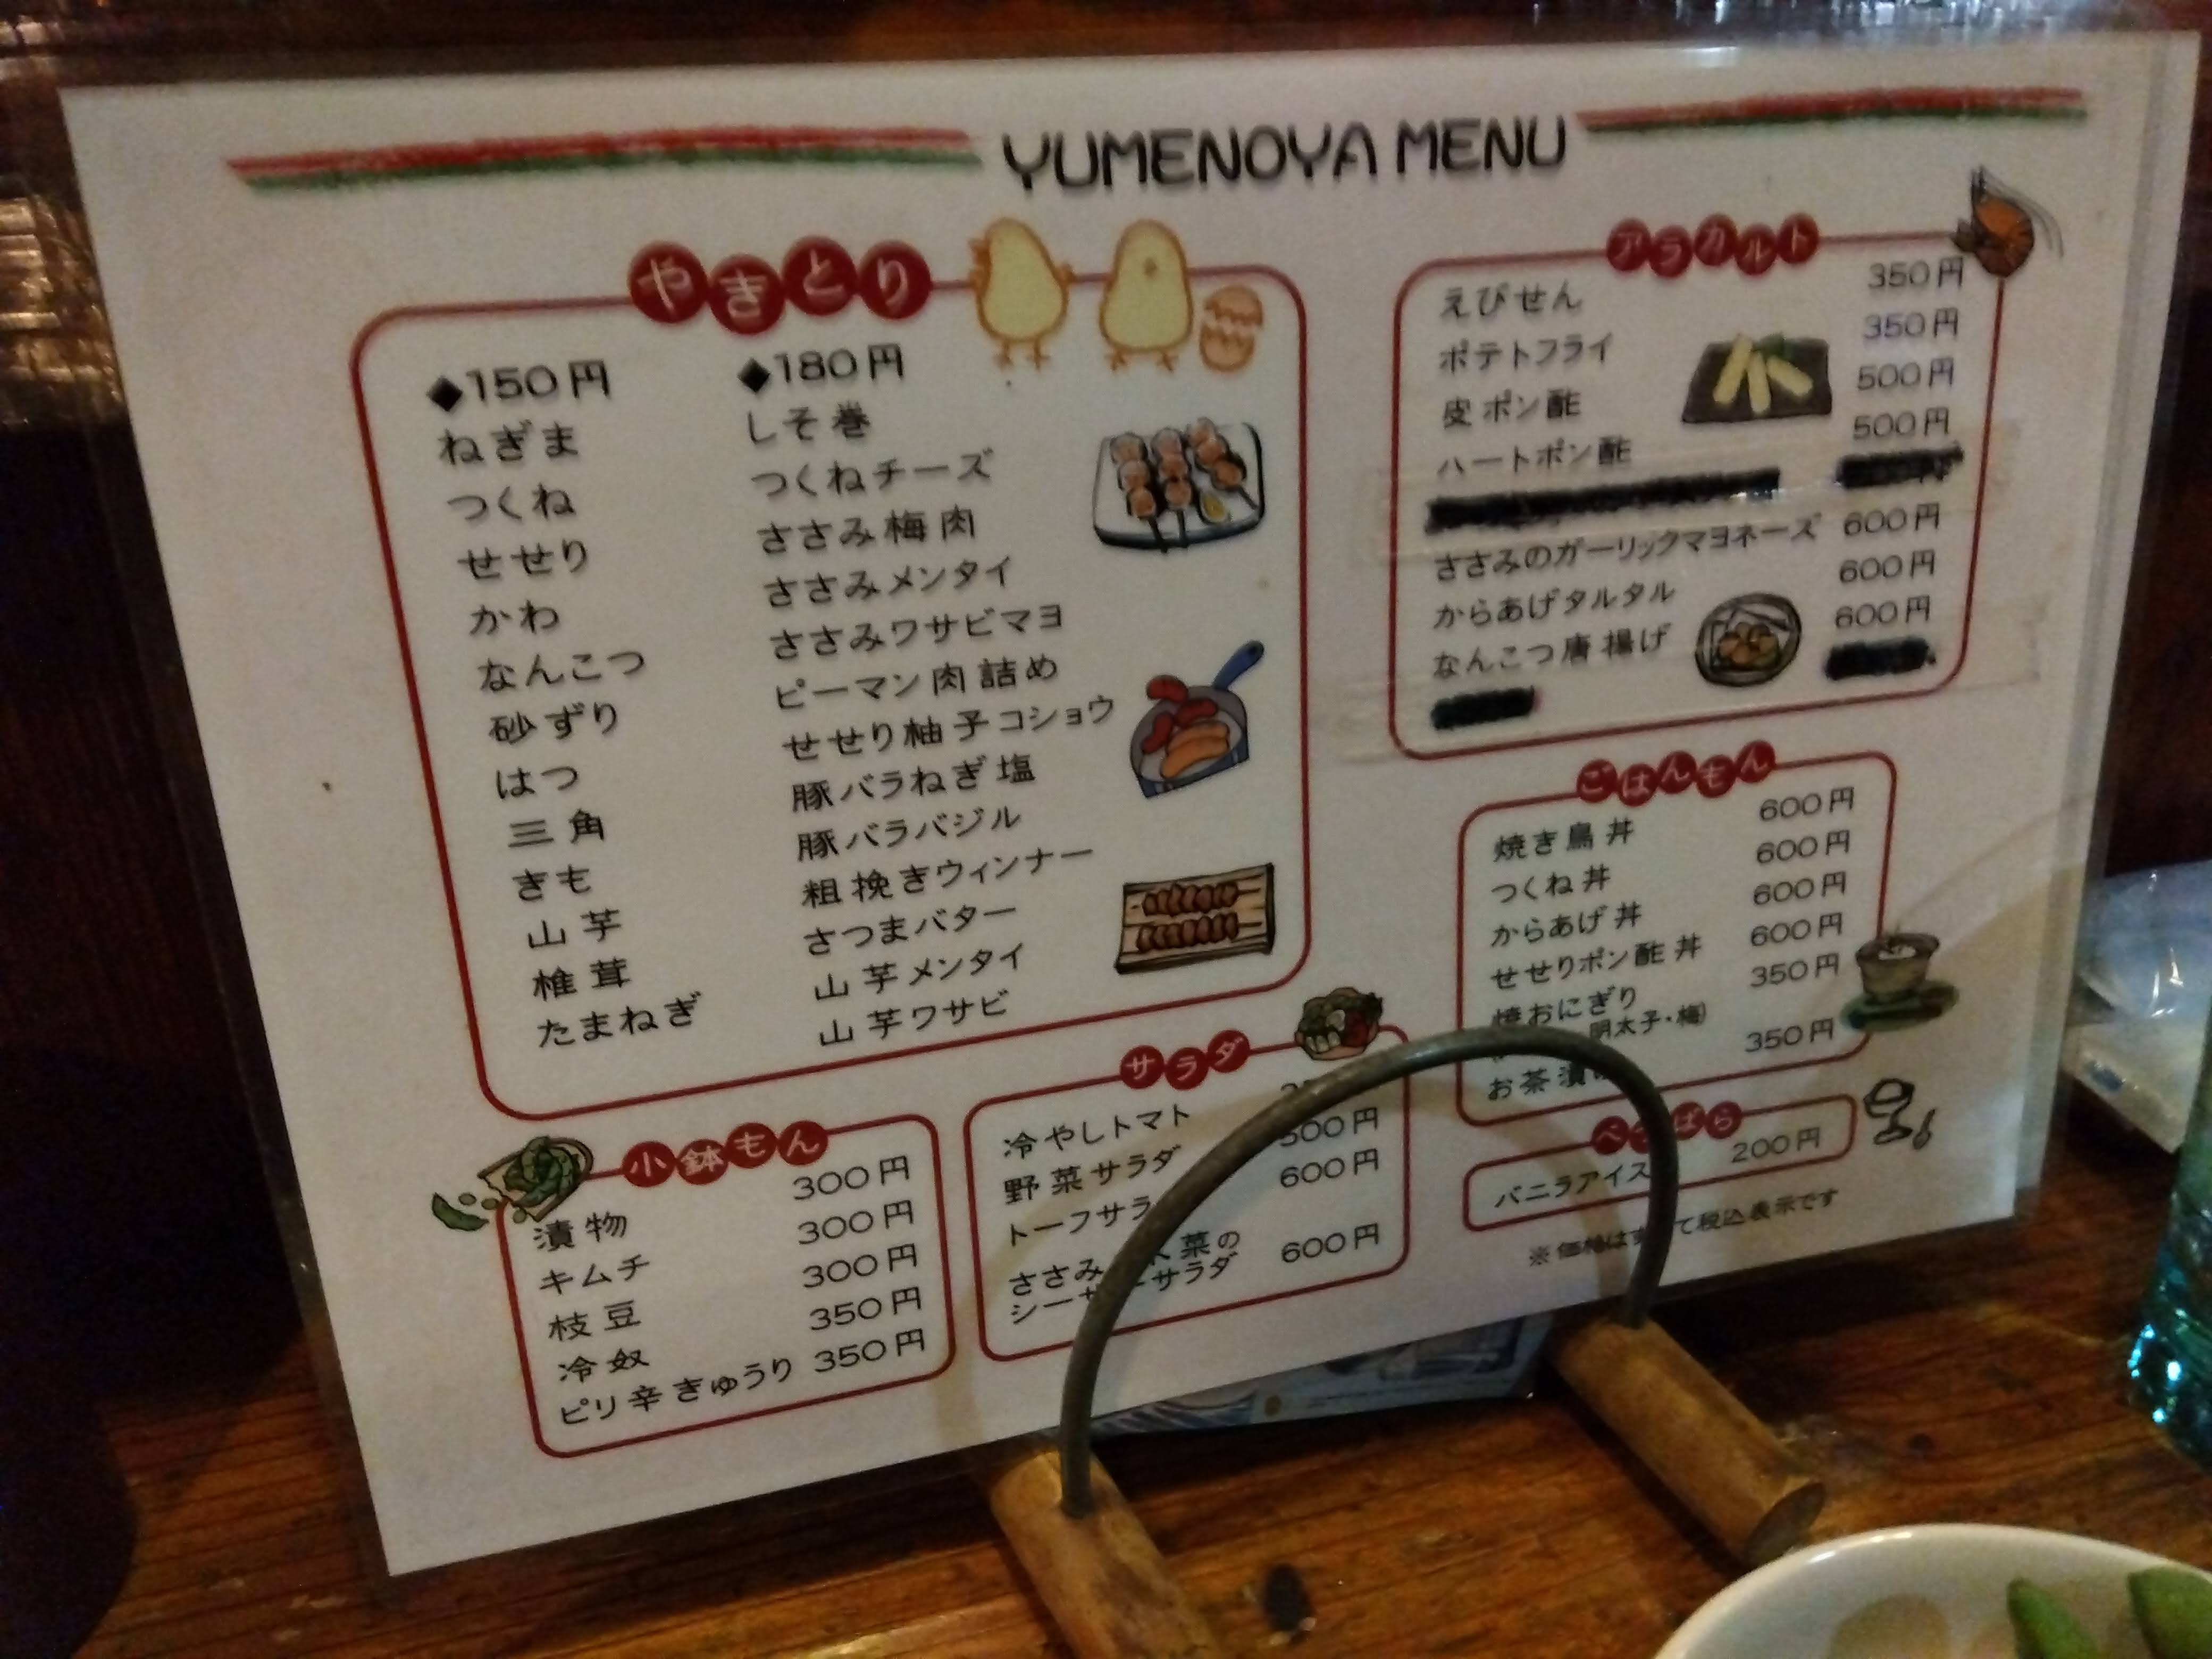 YUMENOYA MENU
やきとり
◆150円
ねぎま
つくね
せせり
かわ
なんこつ
砂ずり
はつ
三角
きも
山芋
椎茸
たまねぎ
◆180円
しそ巻
つくねチーズ
ささみ梅肉
ささみメンタイ
ささみワサビマヨ
ピーマン肉詰め
せせり柚子コショウ
豚バラねぎ塩
豚バラバジル
粗挽きウィンナー
さつまバター
山芋メンタイ
山芋ワサビ
アラカルト
えびせん 350円
ポテトフライ 350円
皮ポン酢 500円
ハートポン酢 500円
ささみのガーリックマヨネーズ 600円
からあげタルタル 600円
なんこつ唐揚げ 600円
ごはんもん
焼き鳥丼 600円
つくね丼 600円
からあげ丼 600円
せせりポン酢丼 600円
焼おにぎり 350円
明太子・梅)
お茶漬 350円
ばら
バニラアイス 200円
※価格はす て税込表示です
小鉢もん
漬物 300円
キムチ 300円
枝豆 300円
冷奴 350円
ピリ辛きゅうり 350円
サラダ
冷やしトマト
野菜サラダ 500円
トーフサラ 600円
ささみ 菜の
シー サラダ 600円